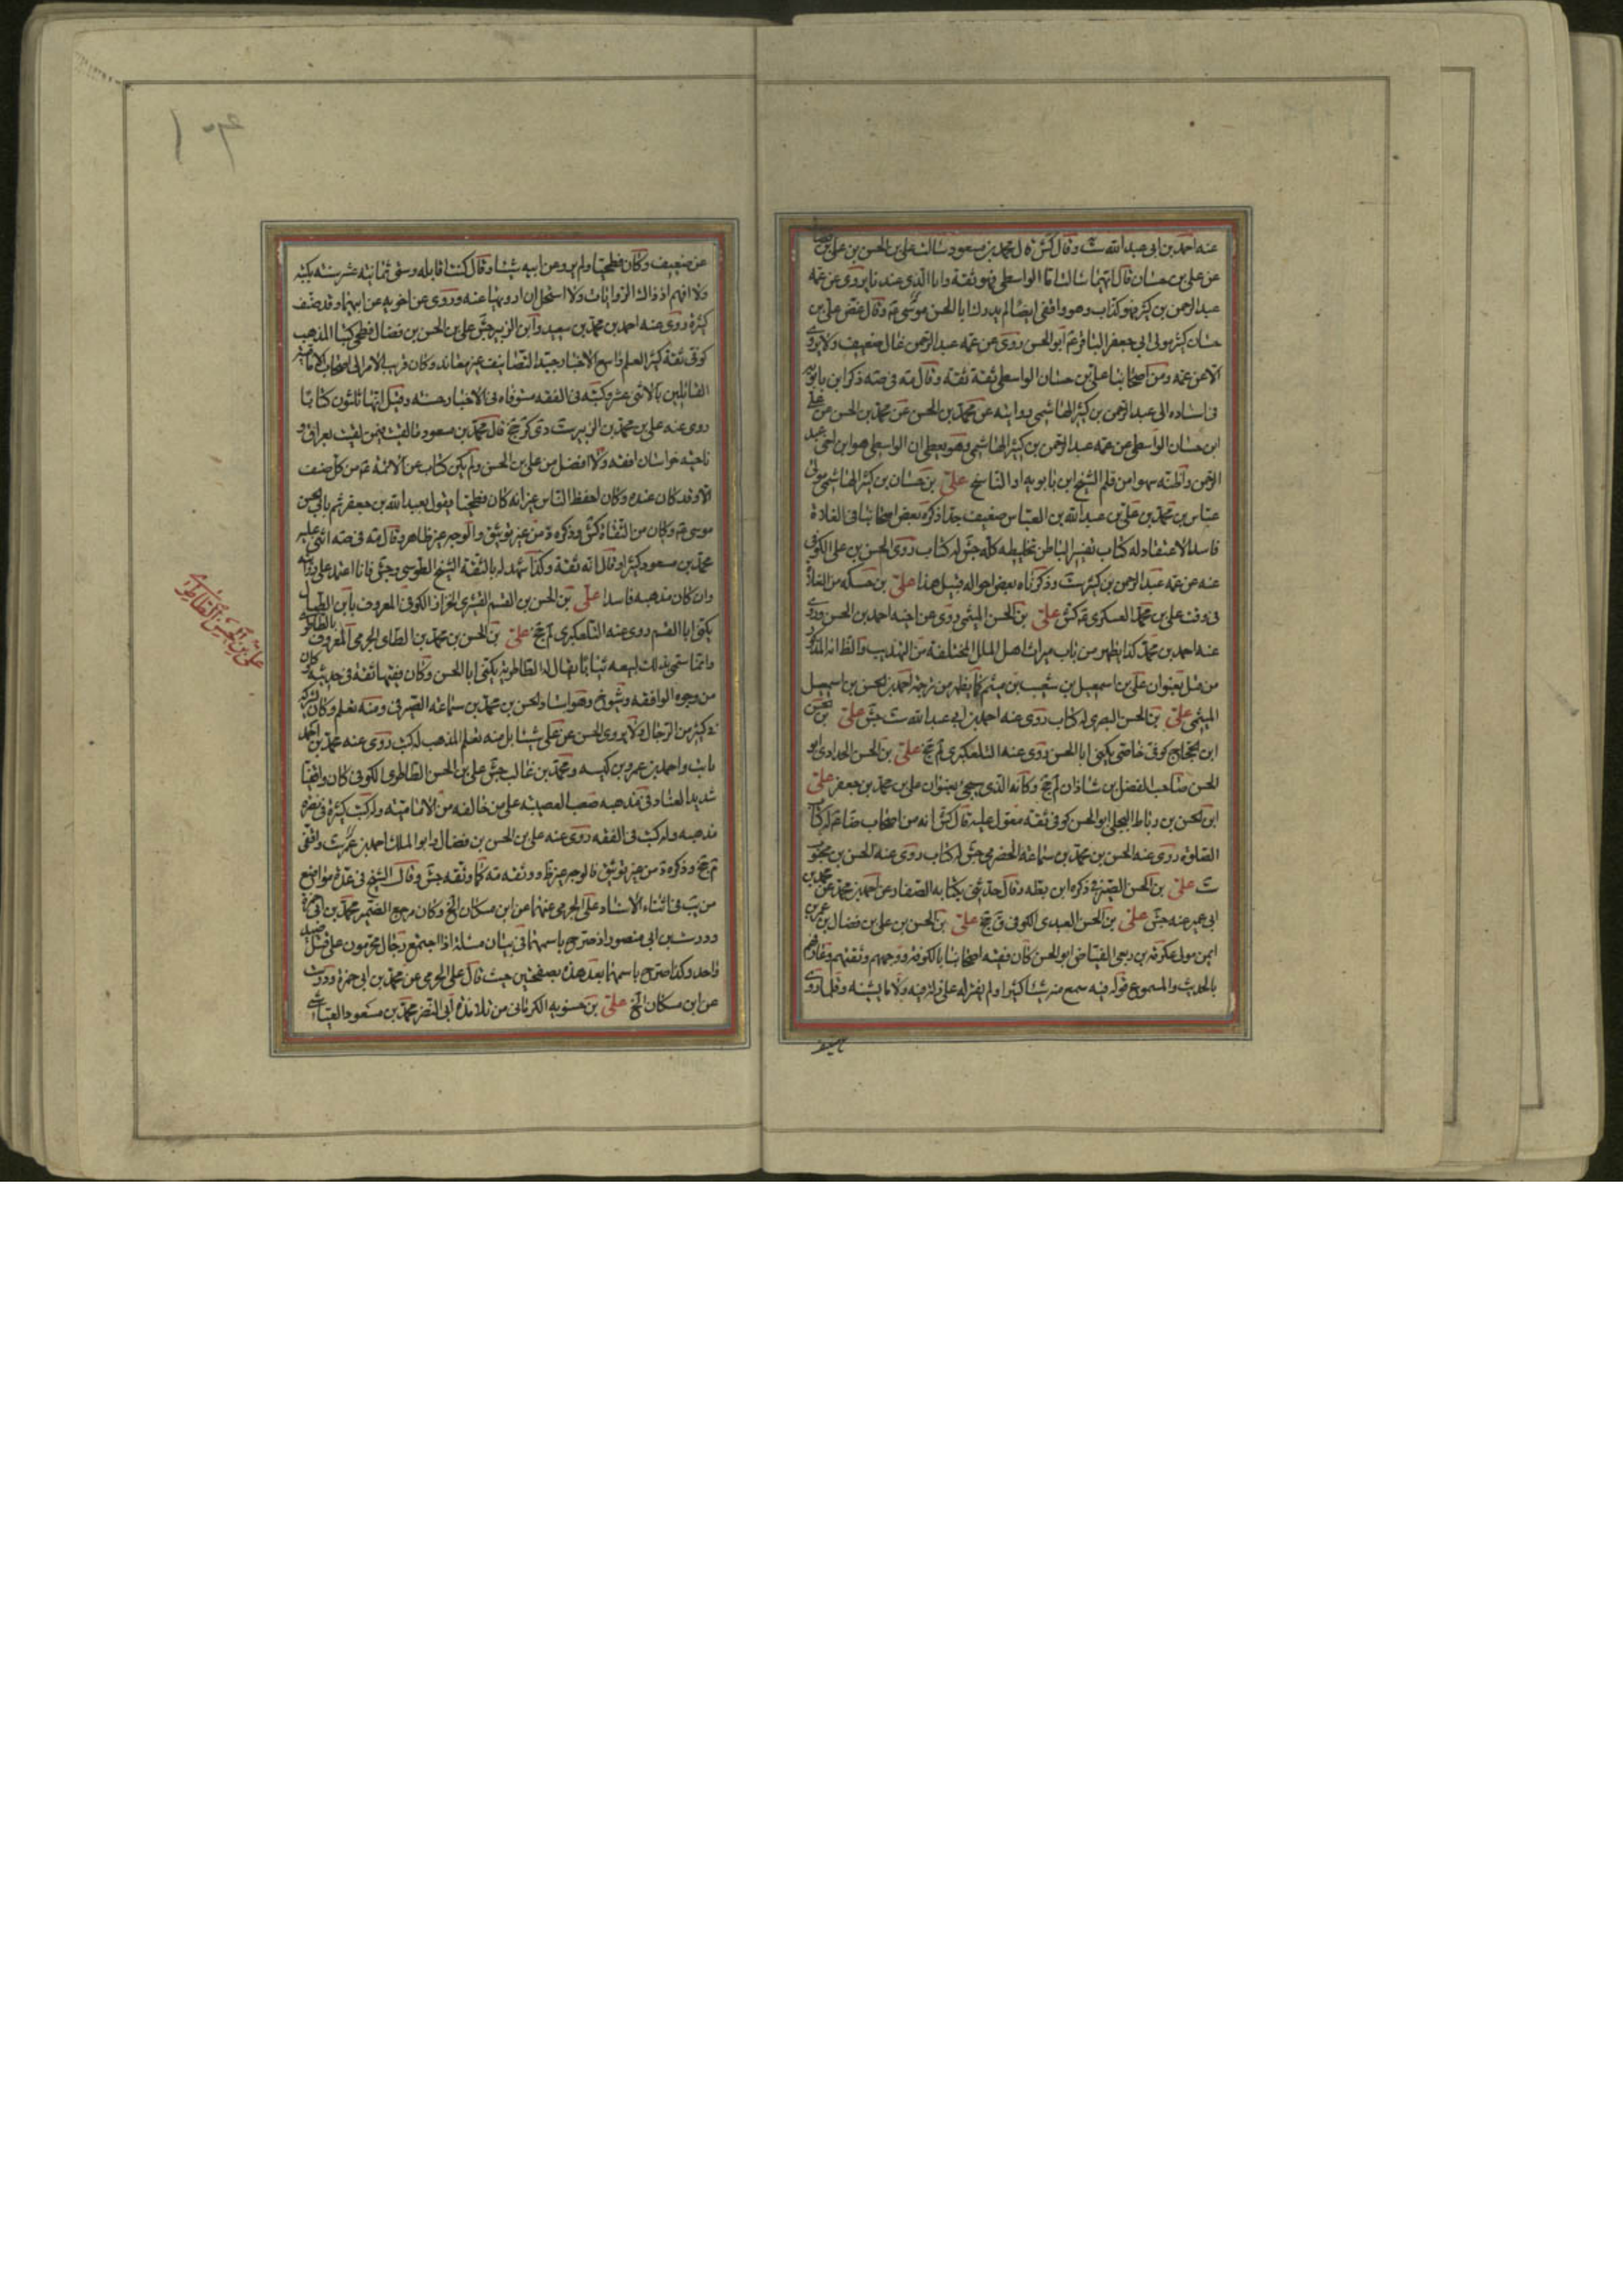 عنه احمد بن ابي عبد الله ست وقال كش قال محمد بن مسعود سالت علي بن الحسن بن علي بن فضال
عن علي بن حسان قال ايهما سالت اما الواسطي فهو ثقة واما الذي عندنا يروى عن عمه
عبد الرحمن بن كثير فهو كذاب وهو واقفى ايضا لم يدرك ابا الحسن موسى ع وقال غض علي بن
حسان بن كثير مولى ابي جعفر الباقر ع ابو الحسن روى عن عمه عبد الرحمن غال ضعيف ولا يروى
الا عن عمه ومن اصحابنا علي بن حسان الواسطي ثقة ثقة وقال مه في صه ذكر ابن بابويه
في اسناده الى عبد الرحمن بن كثير الهاشمي روايته عن محمد بن الحسن عن محمد بن الحسن عن علي
ابن حسان الواسطي عن عمه عبد الرحمن بن كثير الهاشمي وهو يعطي ان الواسطي هو ابن اخي عبد
الرحمن واظنه سهوا من قلم الشيخ ابن بابويه او الناسخ علي بن حسان بن كثير الهاشمي مولى
عباس بن محمد بن علي بن عبد الله بن العباس ضعيف جدا ذكره بعض اصحابنا في الغلاة
فاسد الاعتقاد له كتاب تفسير الباطن تخليطه كله جش له كتاب روى الحسن بن علي الكوفى
عنه عن عمه عبد الرحمن بن كثير ست وذكرناه بعض احواله قبيل هذا علي بن حسكه من الغلاة
في وقت علي بن محمد العسكري ع كش علي بن الحسن الميثمي روى عن اخيه احمد بن الحسن وروى
عنه احمد بن محمد كذا يظهر من باب ميراث اهل الملل المختلفة من التهذيب والظ انه المذكور
من قبل بعنوان علي بن اسمعيل بن شعيب بن ميثم كما يظهر من ترجمة احمد بن الحسن بن اسمعيل
الميثمي علي بن الحسن البصري له كتاب روى عنه احمد بن ابي عبد الله ست جش علي بن الحسن
ابن الحجاج كوفي خاصي يكنى ابا الحسن روى عنه التلعكبري لم جخ علي بن الحسن الحدادي ابو
الحسن صاحب الفضل بن شاذان لم جخ وكانه الذي سيجئ بعنوان علي بن محمد بن جعفر علي
ابن الحسن بن رباط البجلي ابو الحسن كوفي ثقة معول عليه قال كش انه من اصحاب ضا ع له كتاب
الصلوة روى عنه الحسن بن محمد بن سماعة الحضرمي جش له كتاب روى عنه الحسن بن محبوب
ست علي بن الحسن الصيرفي ذكره ابن بطه وقال حدثني بكتابه الصفار عن احمد بن محمد عن محمد بن
ابي عمير عنه جش علي بن الحسن العبدي الكوفى ق جخ علي بن الحسن بن علي بن فضال بن عمر بن
ايمن مولى عكرمة بن ربعي الفياض ابو الحسن كان فقيه اصحابنا بالكوفة ووجههم وثقتهم وعارفهم
بالحديث والمسموع قوله فيه سمع منه شيئا كثيرا ولم يعثر له على زلة فيه ولا ما يشينه وقلما روى
عن ضعيف وكان فطحيا ولم يرو عن ابيه شيئا وقال كنت اقابله وسني ثمانية عشر سنة بكتبه
ولا افهم اذ ذاك الروايات ولا استحل ان ارويها عنه وروى عن اخويه عن ابيهما وقد صنف
كتبا كثيرة روى عنه احمد بن محمد بن سعيد وابن الزبير جش علي بن الحسن بن فضال فطحي المذهب
كوفى ثقة كثير العلم واسع الاخبار جيد التصانيف غير معاند وكان قريب الامر الى اصحابنا الامامية
القائلين بالاثنى عشر وكتبه في الفقه مستوفاه في الاخبار حسنه وقيل انها ثلثون كتابا
روى عنه علي بن محمد بن الزبير ست دى كر جخ قال محمد بن مسعود ما لقيت فيمن لقيت بعراق و
ناحية خراسان افقه ولا افضل من علي بن الحسن ولم يكن كتاب عن الائمة ع من كل صنف
الا وقد كان عنده وكان احفظ الناس غير انه كان فطحيا يقول بعبد الله بن جعفر ثم بابي الحسن
موسى ع وكان من الثقاة كش وذكره د من غير توثيق والوجه غير ظاهر وقال مه في صه اثنى عليه
محمد بن مسعود كثيرا وقال انه ثقة وكذا شهد له بالثقة الشيخ الطوسي وجش فانا اعتمد على روايته
وان كان مذهبه فاسدا علي بن الحسن بن القسم القشيري الخزاز الكوفى المعروف بابن الطبال
يكنى ابا القسم روى عنه التلعكبري لم جخ علي بن الحسن بن محمد بن الطائي الجرمي المعروف بالطاطري
وانما سمى بذلك لبيعه ثيابا يقال لها الطاطرية يكنى ابا الحسن وكان فقيها ثقة في حديثه كان
من وجوه الواقفه وشيوخ وهو استاد الحسن بن محمد بن سماعة الصيرفى ومنه تعلم وكان يشركه
في كثير من الرجال ولا يروى الحسن عن علي شيئا بل منه تعلم المذهب له كتب روى عنه محمد بن احمد
ثابت واحمد بن عمرو بن كيسه ومحمد بن غالب جش علي بن الحسن الطاطرى الكوفى كان واقفيا
شديد العناد في مذهبه صعب العصبية على من خالفه من الامامية وله كتب كثيرة في نصرة
مذهبه وله كتب في الفقه روى عنه علي بن الحسن بن فضال وابو الملك احمد بن عمر ست واقفى
م جخ وذكره د من غير توثيق فالوجه غير ظ ووثقه مه كما وثقه جش وقال الشيخ في عدة مواضع
من يب في اثناء الاسناد علي الجرمي عنهما عن ابن مسكان الخ وكان مرجع الضمير محمد بن ابي حمزة
ودرست بن ابي منصور اذ صرح باسمهما في بيان مسئلة اذا اجتمع رجال محرمون على قتل صيد
واحد وكذا صرح باسمهما بعد هذه بصفحتين حيث قال علي الجرمي عن محمد بن ابي حمزة ودرست
عن ابن مسكان الخ علي بن حسنويه الكرماني من تلامذة ابي النضر محمد بن مسعود العياشي
علي بن الحسن الطاطرى